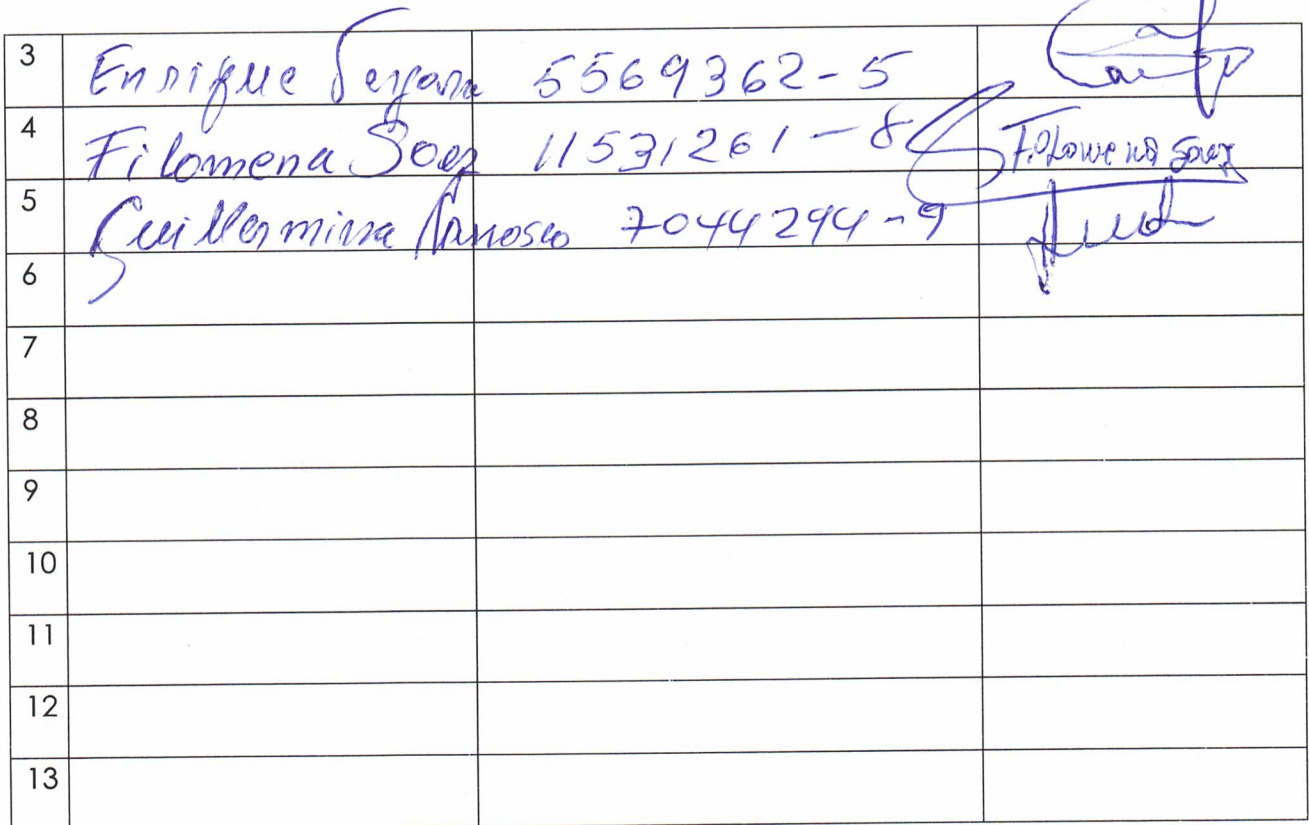 3 Enrique Vergara 5569362-5
4 Filomena Soez 11531261-8 Filomena Soez
5 Guillermina 7044294-9
6
7
8
9
10
11
12
13